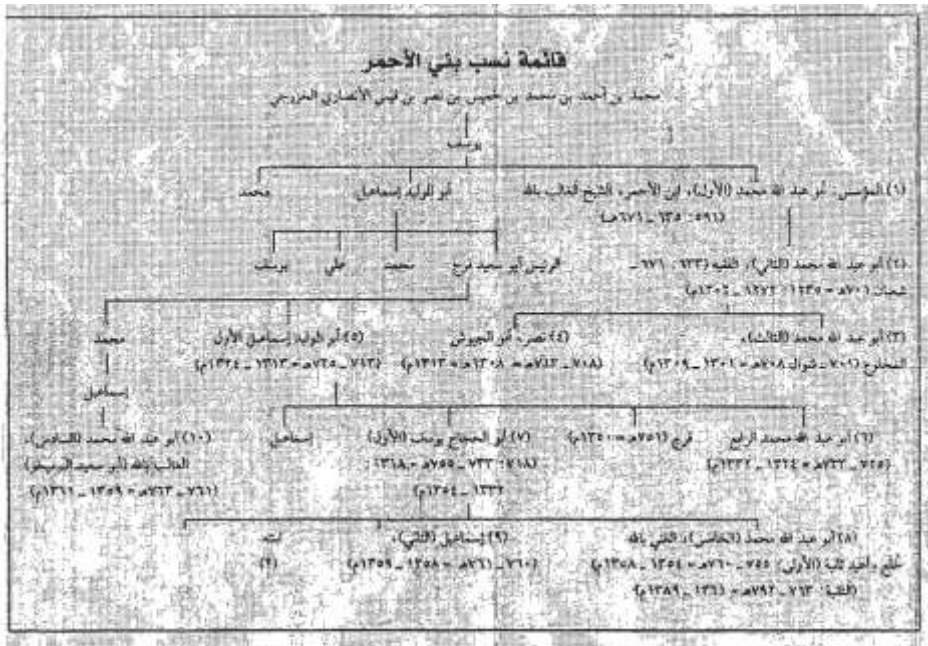 قائمة نسب بني الأحمر
محمد بن أحمد بن محمد بن خميس بن نصر بن قيس الأنصاري الخزرجي
يوسف
(١) المؤسس: أبو عبد الله محمد (الأول)، ابن الأحمر، الشيخ الغالب بالله
(٥٩١: ٦٣٥ _ ٦٧١هـ)
أبو الوليد إسماعيل
محمد
(٢) أبو عبد الله محمد (الثاني)، الفقيه (٦٣٣: ٦٧١ _
شعبان ٧٠١هـ = ١٢٣٥: ١٢٧٢ _ ١٣٠٢م)
الرئيس أبو سعيد فرج
محمد
علي
يوسف
(٣) أبو عبد الله محمد (الثالث)،
المخلوع (٧٠١ _ شوال ٧٠٨هـ = ١٣٠٢ _ ١٣٠٩م)
(٤) نصر، أبو الجيوش
(٧٠٨ _ ٧١٣هـ = ١٣٠٨ _ ١٣١٣م)
(٥) أبو الوليد إسماعيل الأول
(٧١٣ _ ٧٢٥هـ = ١٣١٣ _ ١٣٢٤م)
محمد
إسماعيل
(٦) أبو عبد الله محمد الرابع
(٧٢٥ _ ٧٣٣هـ = ١٣٢٤ _ ١٣٣٢م)
فرج (٧٥١هـ = ١٣٥٠م)
(٧) أبو الحجاج يوسف (الأول)
(٧١٨: ٧٣٣ _ ٧٥٥هـ = ١٣١٨:
١٣٣٢ _ ١٣٥٤م)
إسماعيل
(١٠) أبو عبد الله محمد (السادس)،
الغالب بالله (أبو سعيد البرميخو)
(٧٦١ _ ٧٦٣هـ = ١٣٥٩ _ ١٣٦١م)
(٨) أبو عبد الله محمد (الخامس)، الغني بالله
خلع وأعيد ثانية (الأولى: ٧٥٥ _ ٧٦٠هـ = ١٣٥٤ _ ١٣٥٨م)
(الثانية: ٧٦٣ _ ٧٩٣هـ = ١٣٦١ _ ١٣٨٩م)
(٩) إسماعيل (الثاني)،
(٧٦٠ _ ٧٦١هـ = ١٣٥٨ _ ١٣٥٩م)
ابنته
(؟)